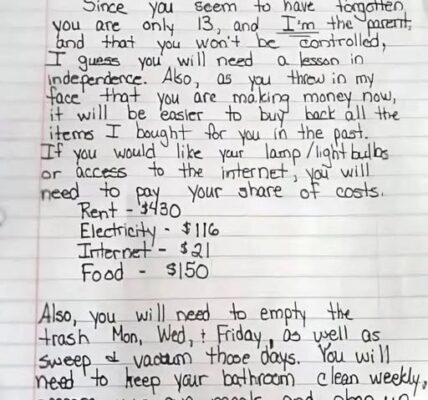 Since you seem to have forgotten
you are only 13, and I'm the parent,
and that you won't be controlled,
I guess you will need a lesson in
independence. Also, as you threw in my
face that you are making money now,
it will be easier to buy back all the
items I bought for you in the past.
If you would like your lamp/lightbulbs
or access to the internet, you will
need to pay your share of costs.
Rent - $430
Electricity - $116
Internet - $21
Food - $150
Also, you will need to empty the
trash Mon, Wed, + Friday, as well as
sweep & vacuum those days. You will
need to keep your bathroom clean weekly,
meals and